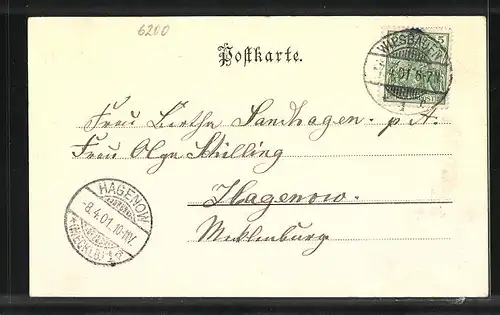 6200
Postkarte.
WIESBADEN
4.01 6-7N.
1
5
Frau Berthe Sandhagen. p. A.
Frau Olga Schilling
Hagenow.
Mecklenburg
HAGENOW
-8.4.01. 10-11V.
* (MECKLB) *